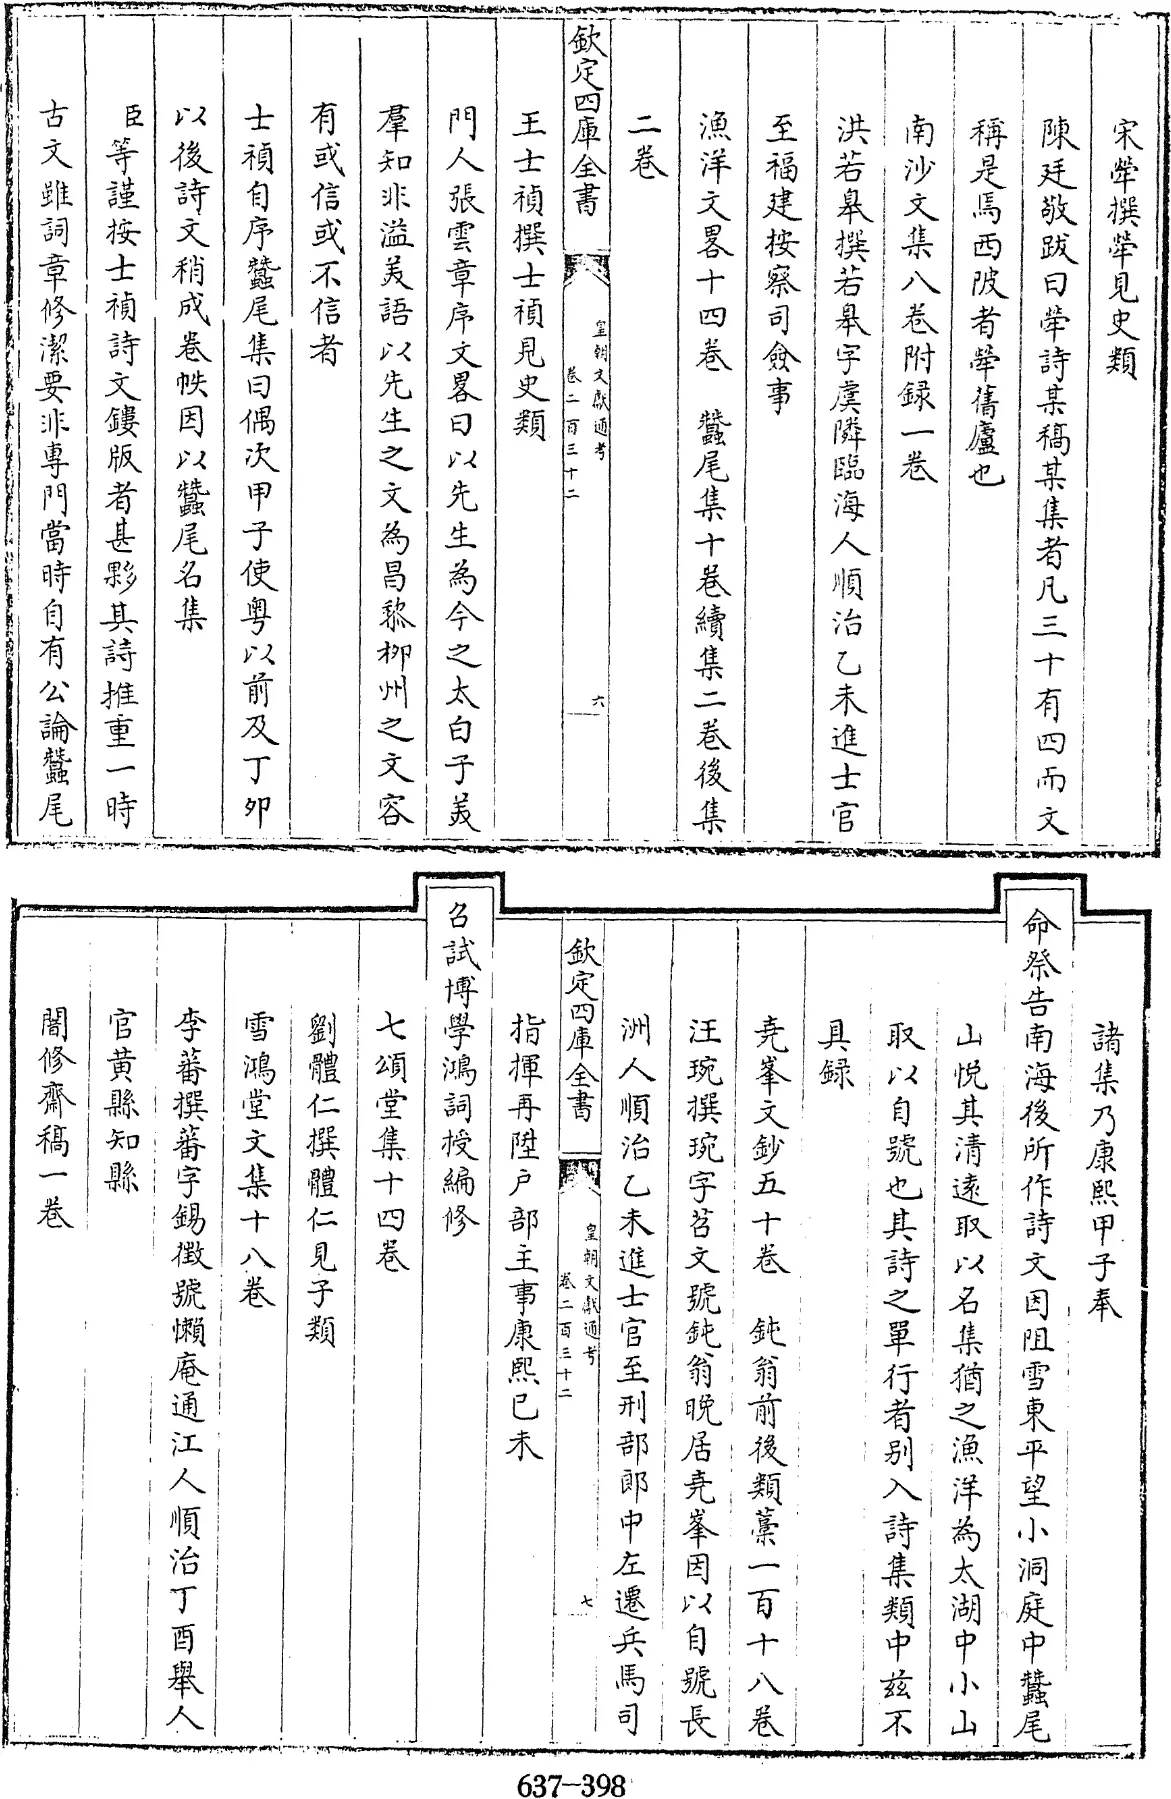 宋犖撰犖見史類
陳廷敬跋曰犖詩某稿某集者凡三十有四而文
稱是焉西陂者犖舊廬也
南沙文集八卷附録一卷
洪若臯撰若臯字虞隣臨海人順治乙未進士官
至福建按察司僉事
漁洋文畧十四卷　蠶尾集十卷續集二卷後集
二卷
欽定四庫全書
皇朝文獻通考
卷二百三十二
六
王士禎撰士禎見史類
門人張雲章序文畧曰以先生為今之太白子美
羣知非溢美語以先生之文為昌黎柳州之文容
有或信或不信者
士禎自序蠶尾集曰偶次甲子使粤以前及丁卯
以後詩文稍成卷帙因以蠶尾名集
臣等謹按士禎詩文鏤版者甚夥其詩推重一時
古文雖詞章修潔要非專門當時自有公論蠶尾
諸集乃康熙甲子奉
命祭告南海後所作詩文因阻雪東平望小洞庭中蠶尾
山悦其清遠取以名集猶之漁洋為太湖中小山
取以自號也其詩之單行者别入詩集類中兹不
具録
尭峯文鈔五十卷　鈍翁前後類藁一百十八卷
汪琬撰琬字苕文號鈍翁晚居尭峯因以自號長
洲人順治乙未進士官至刑部郎中左遷兵馬司
欽定四庫全書
皇朝文獻通考
卷二百三十二
七
指揮再陞户部主事康熙已未
召試博學鴻詞授編修
七頌堂集十四卷
劉體仁撰體仁見子類
雪鴻堂文集十八卷
李蕃撰蕃字錫徴號懶庵通江人順治丁酉舉人
官黄縣知縣
闇修齋稿一卷
637-398